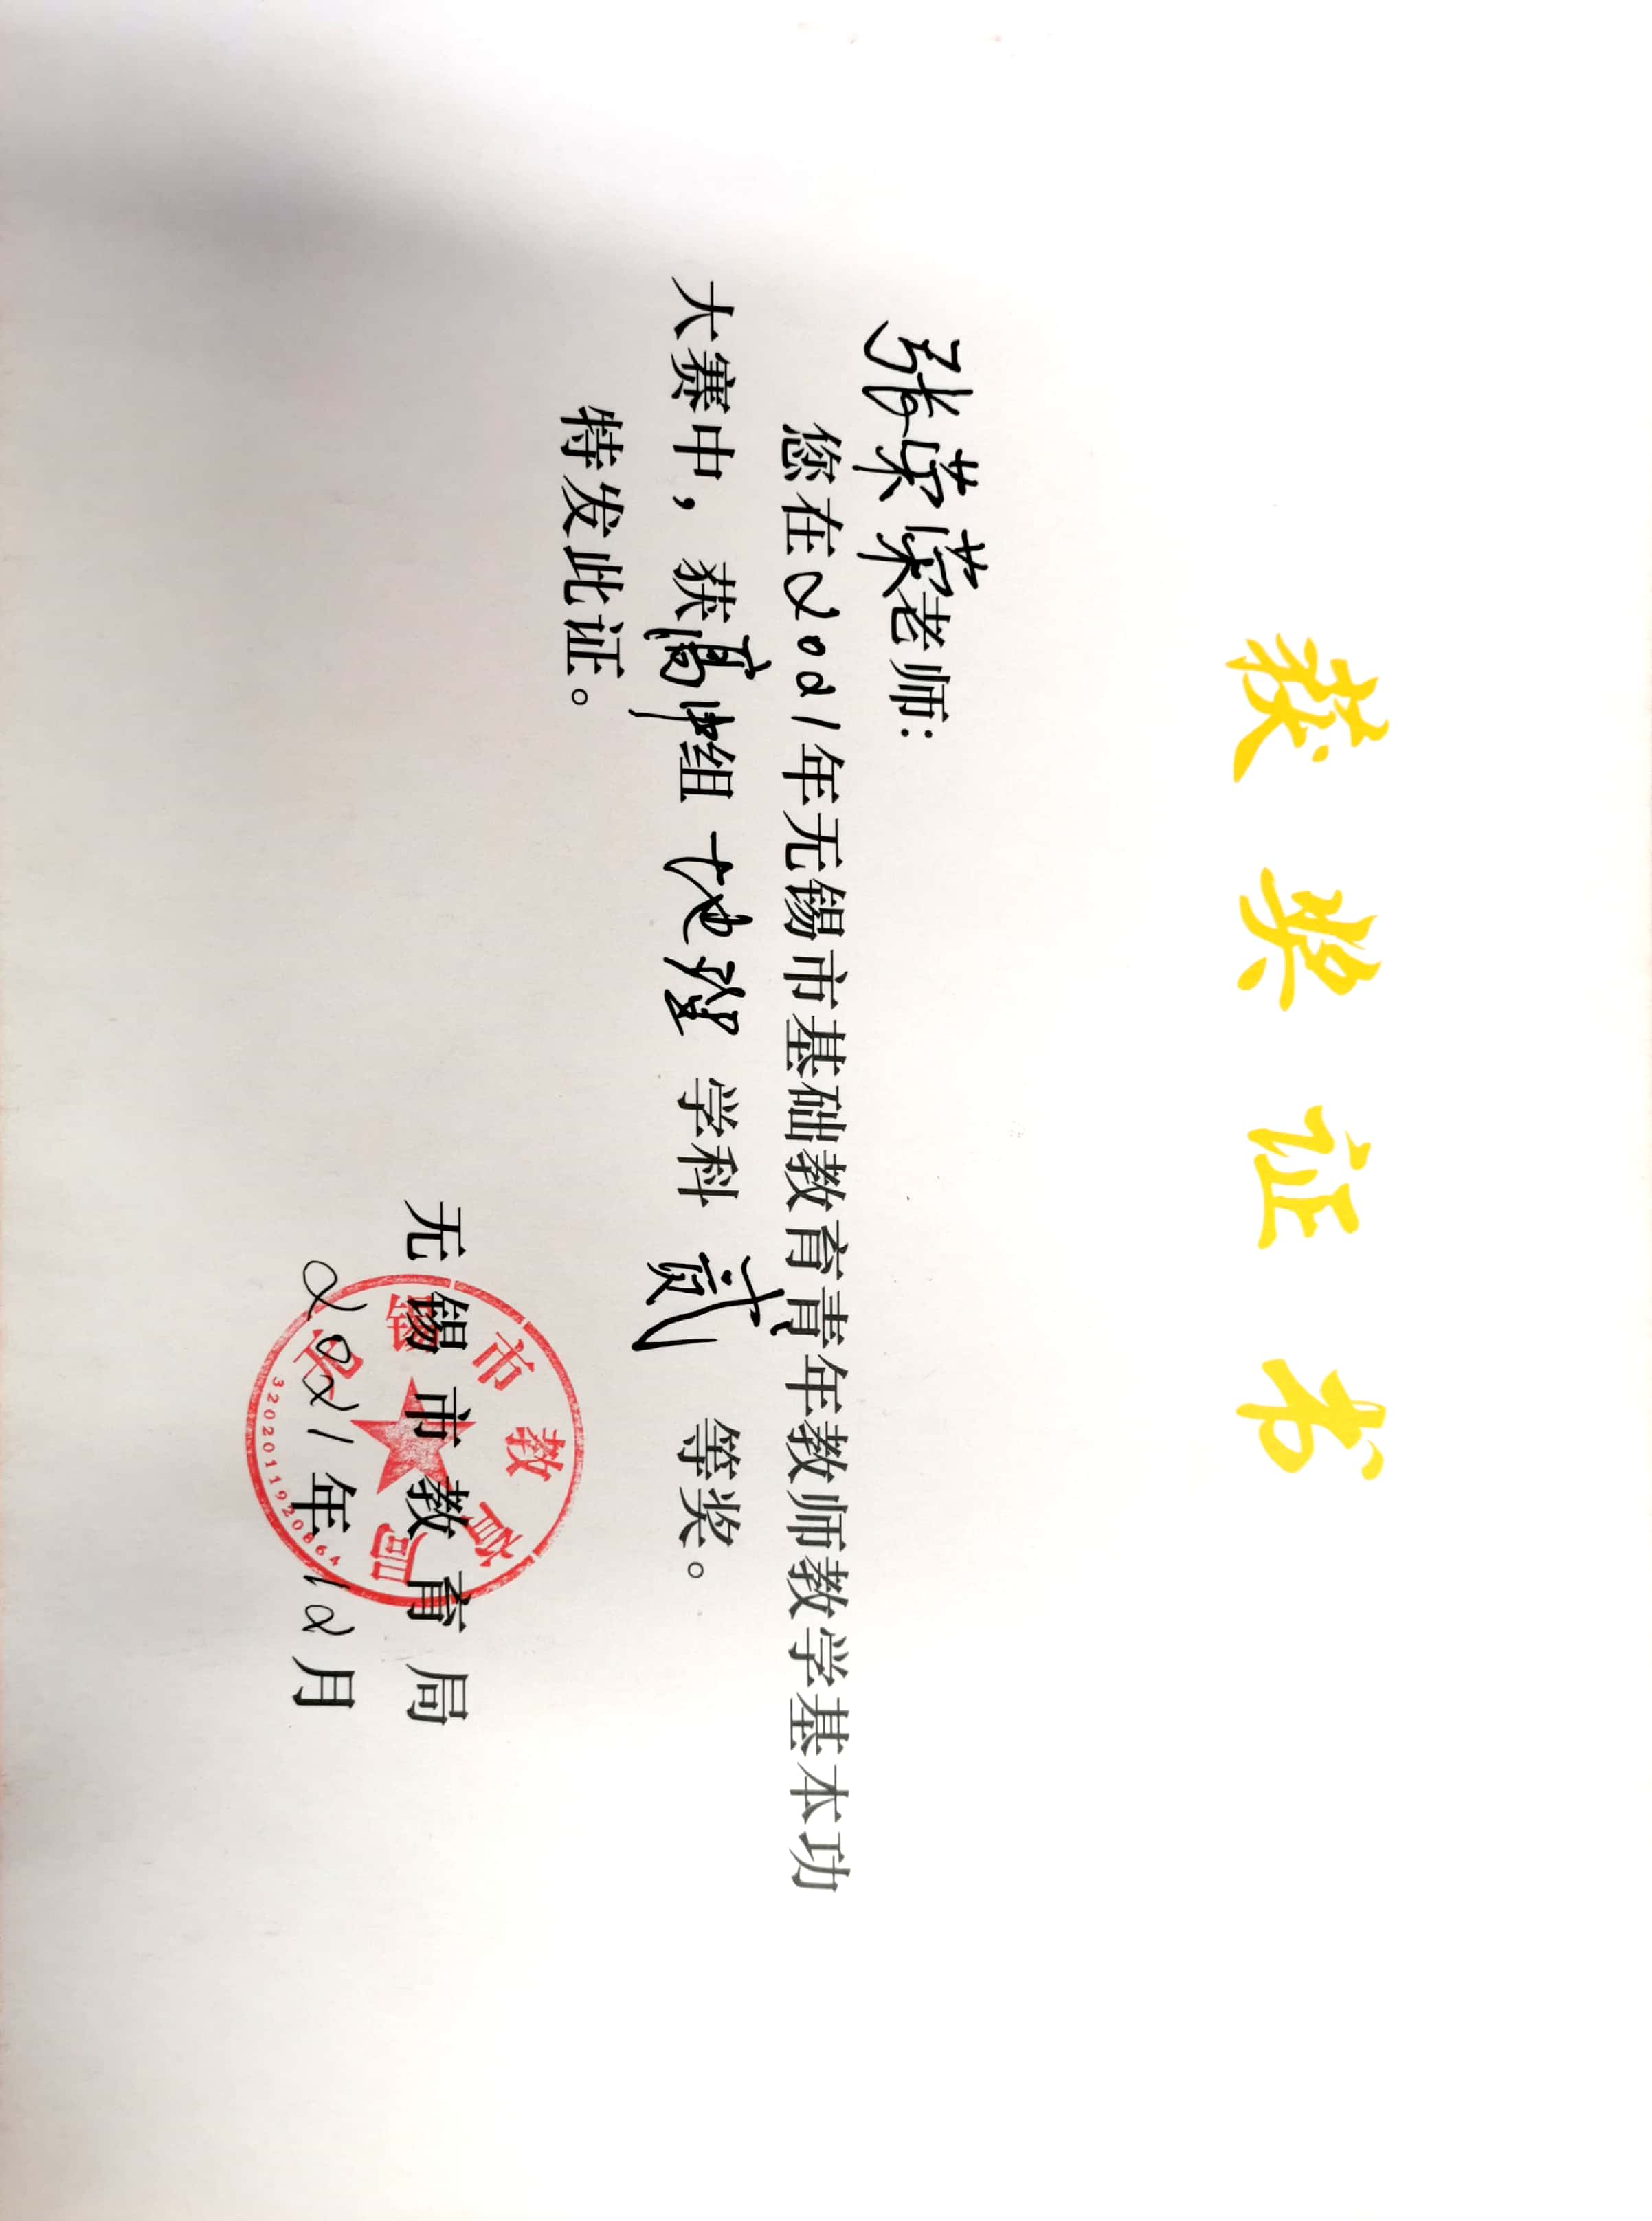 获奖证书
张荣荣老师:
您在2021年无锡市基础教育青年教师教学基本功
大赛中，获高中组地理学科贰等奖。
特发此证。
无锡市教育局
2021年12月
无锡市教育局
3202011920864